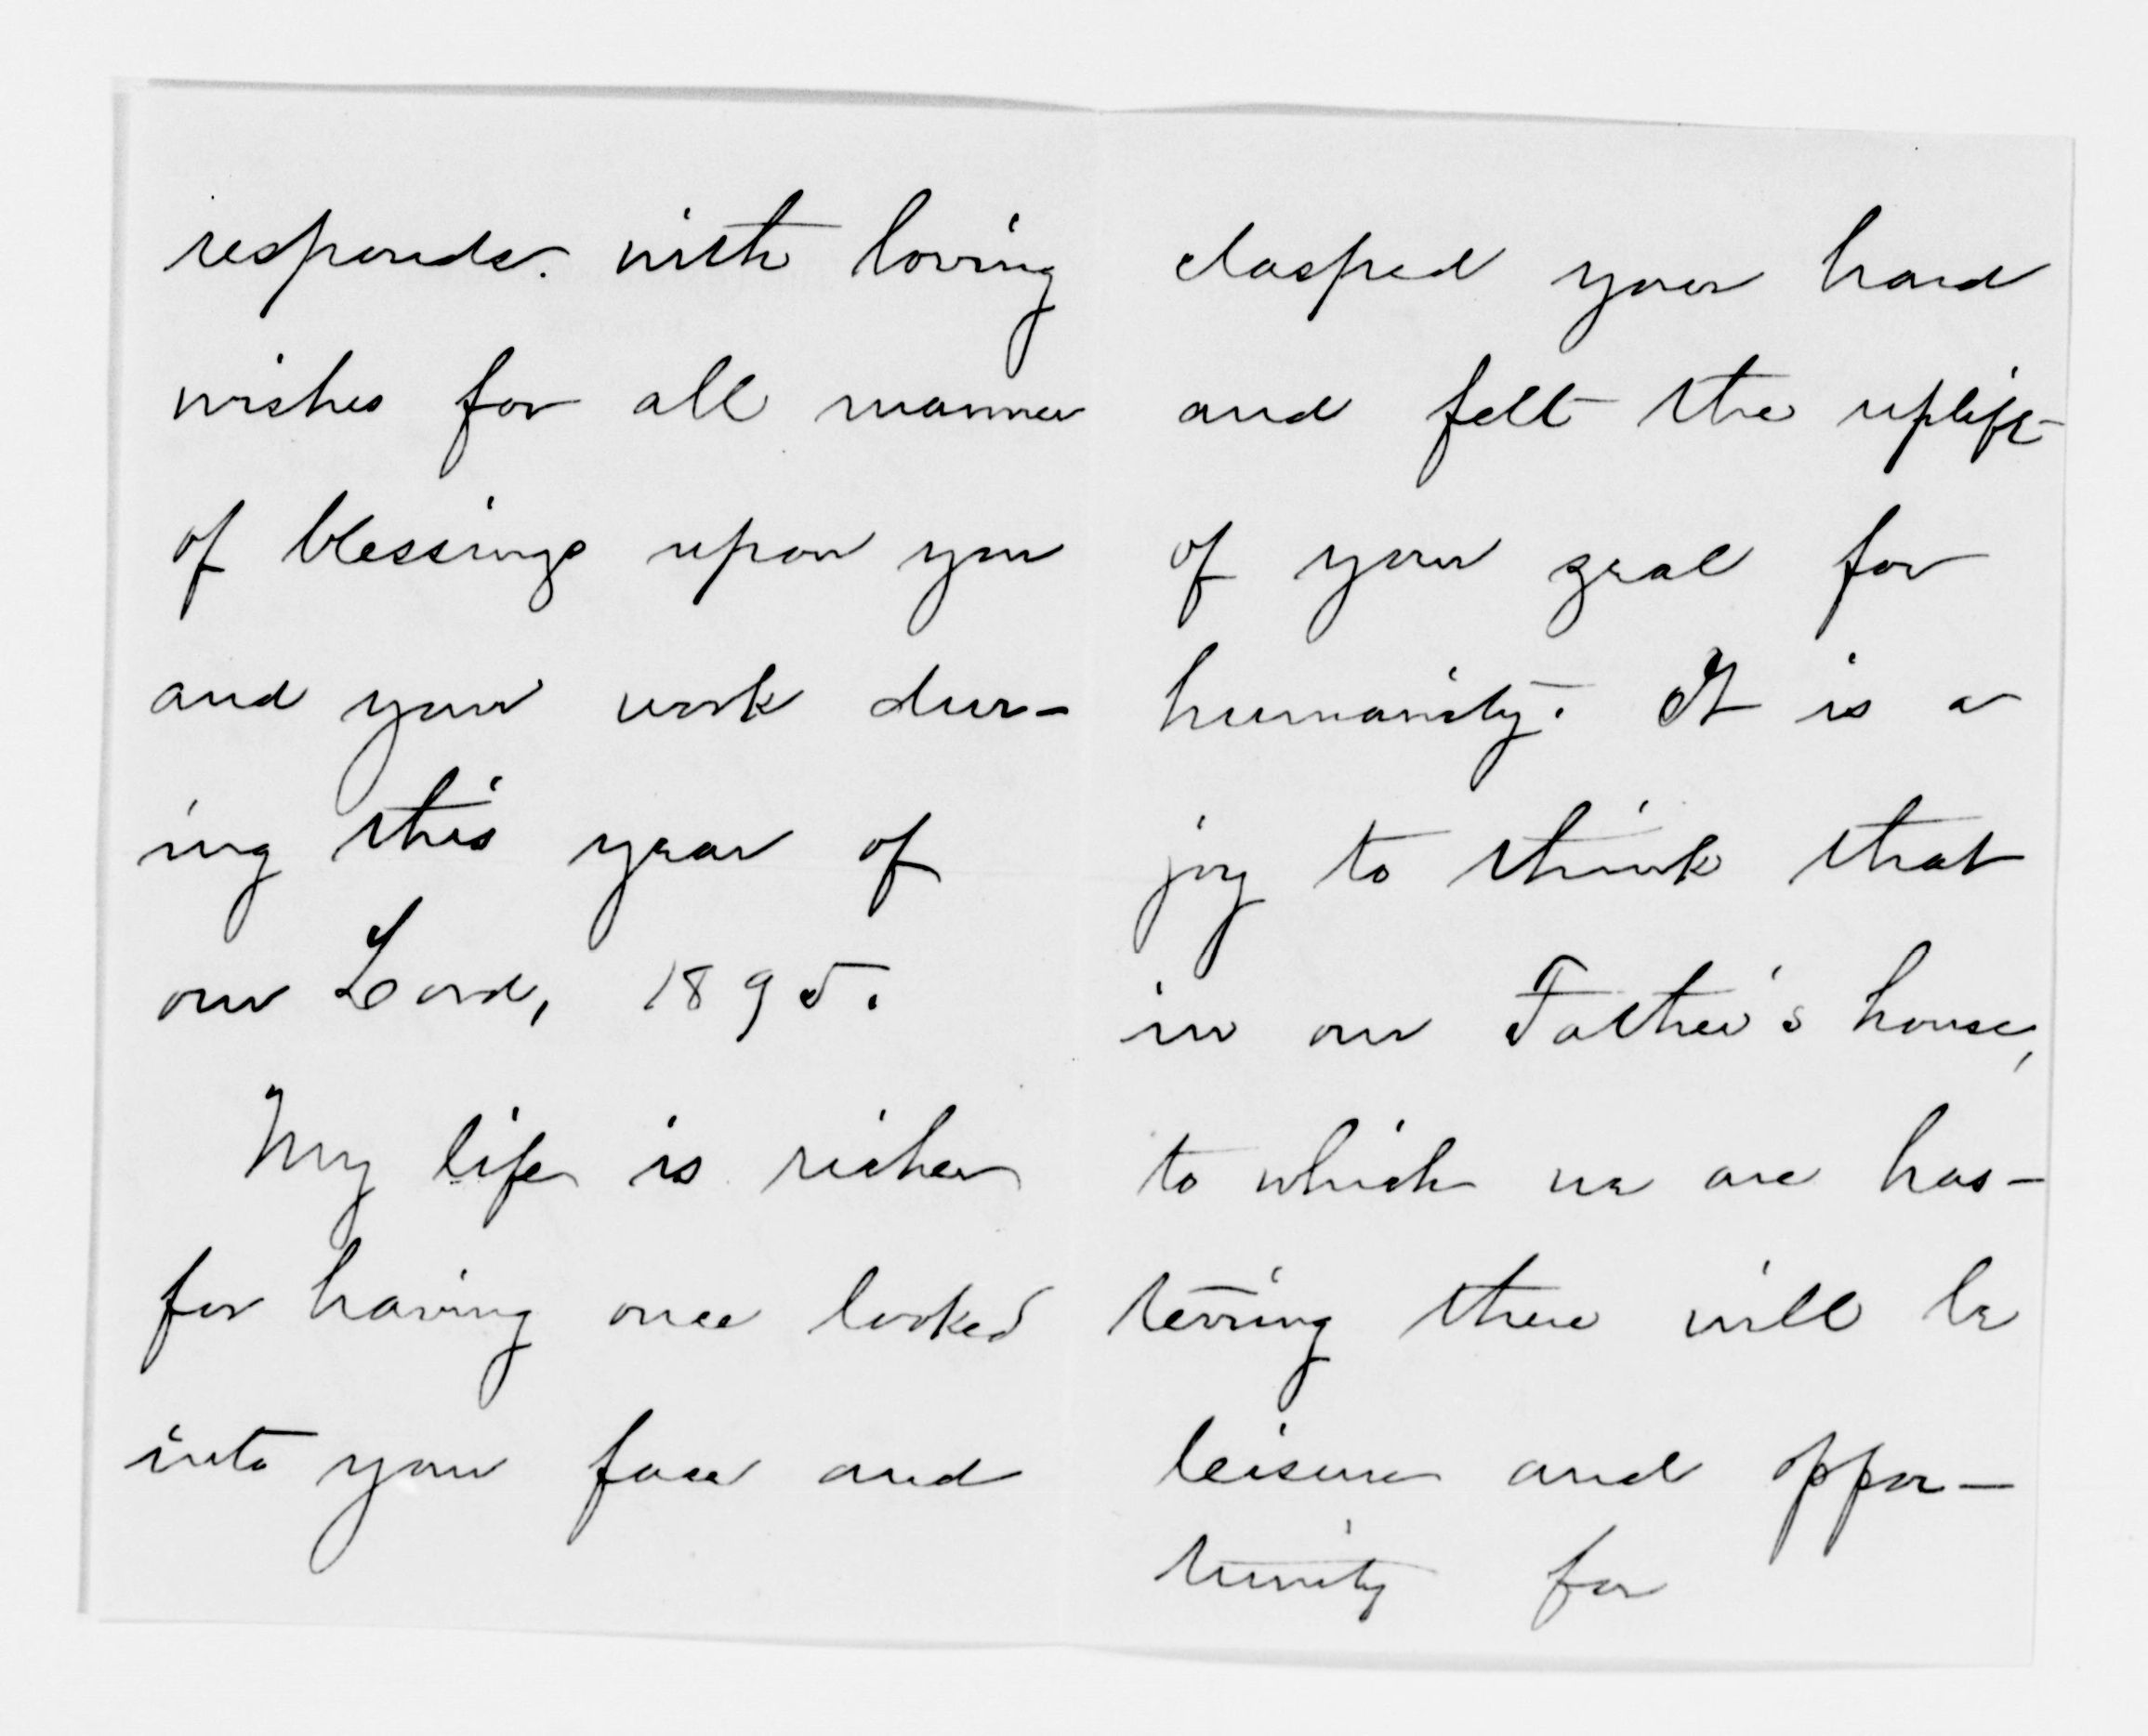 responds with loving
wishes for all manner
of blessings upon you
and your work dur-
ing this year of
our Lord, 1895.
My life is richer
for having once looked
into your face and
clasped your hand
and felt the uplift
of your zeal for
humanity. It is a
joy to think that
in our Father's house,
to which we are has-
tening there will be
leisure and oppor-
tunity for